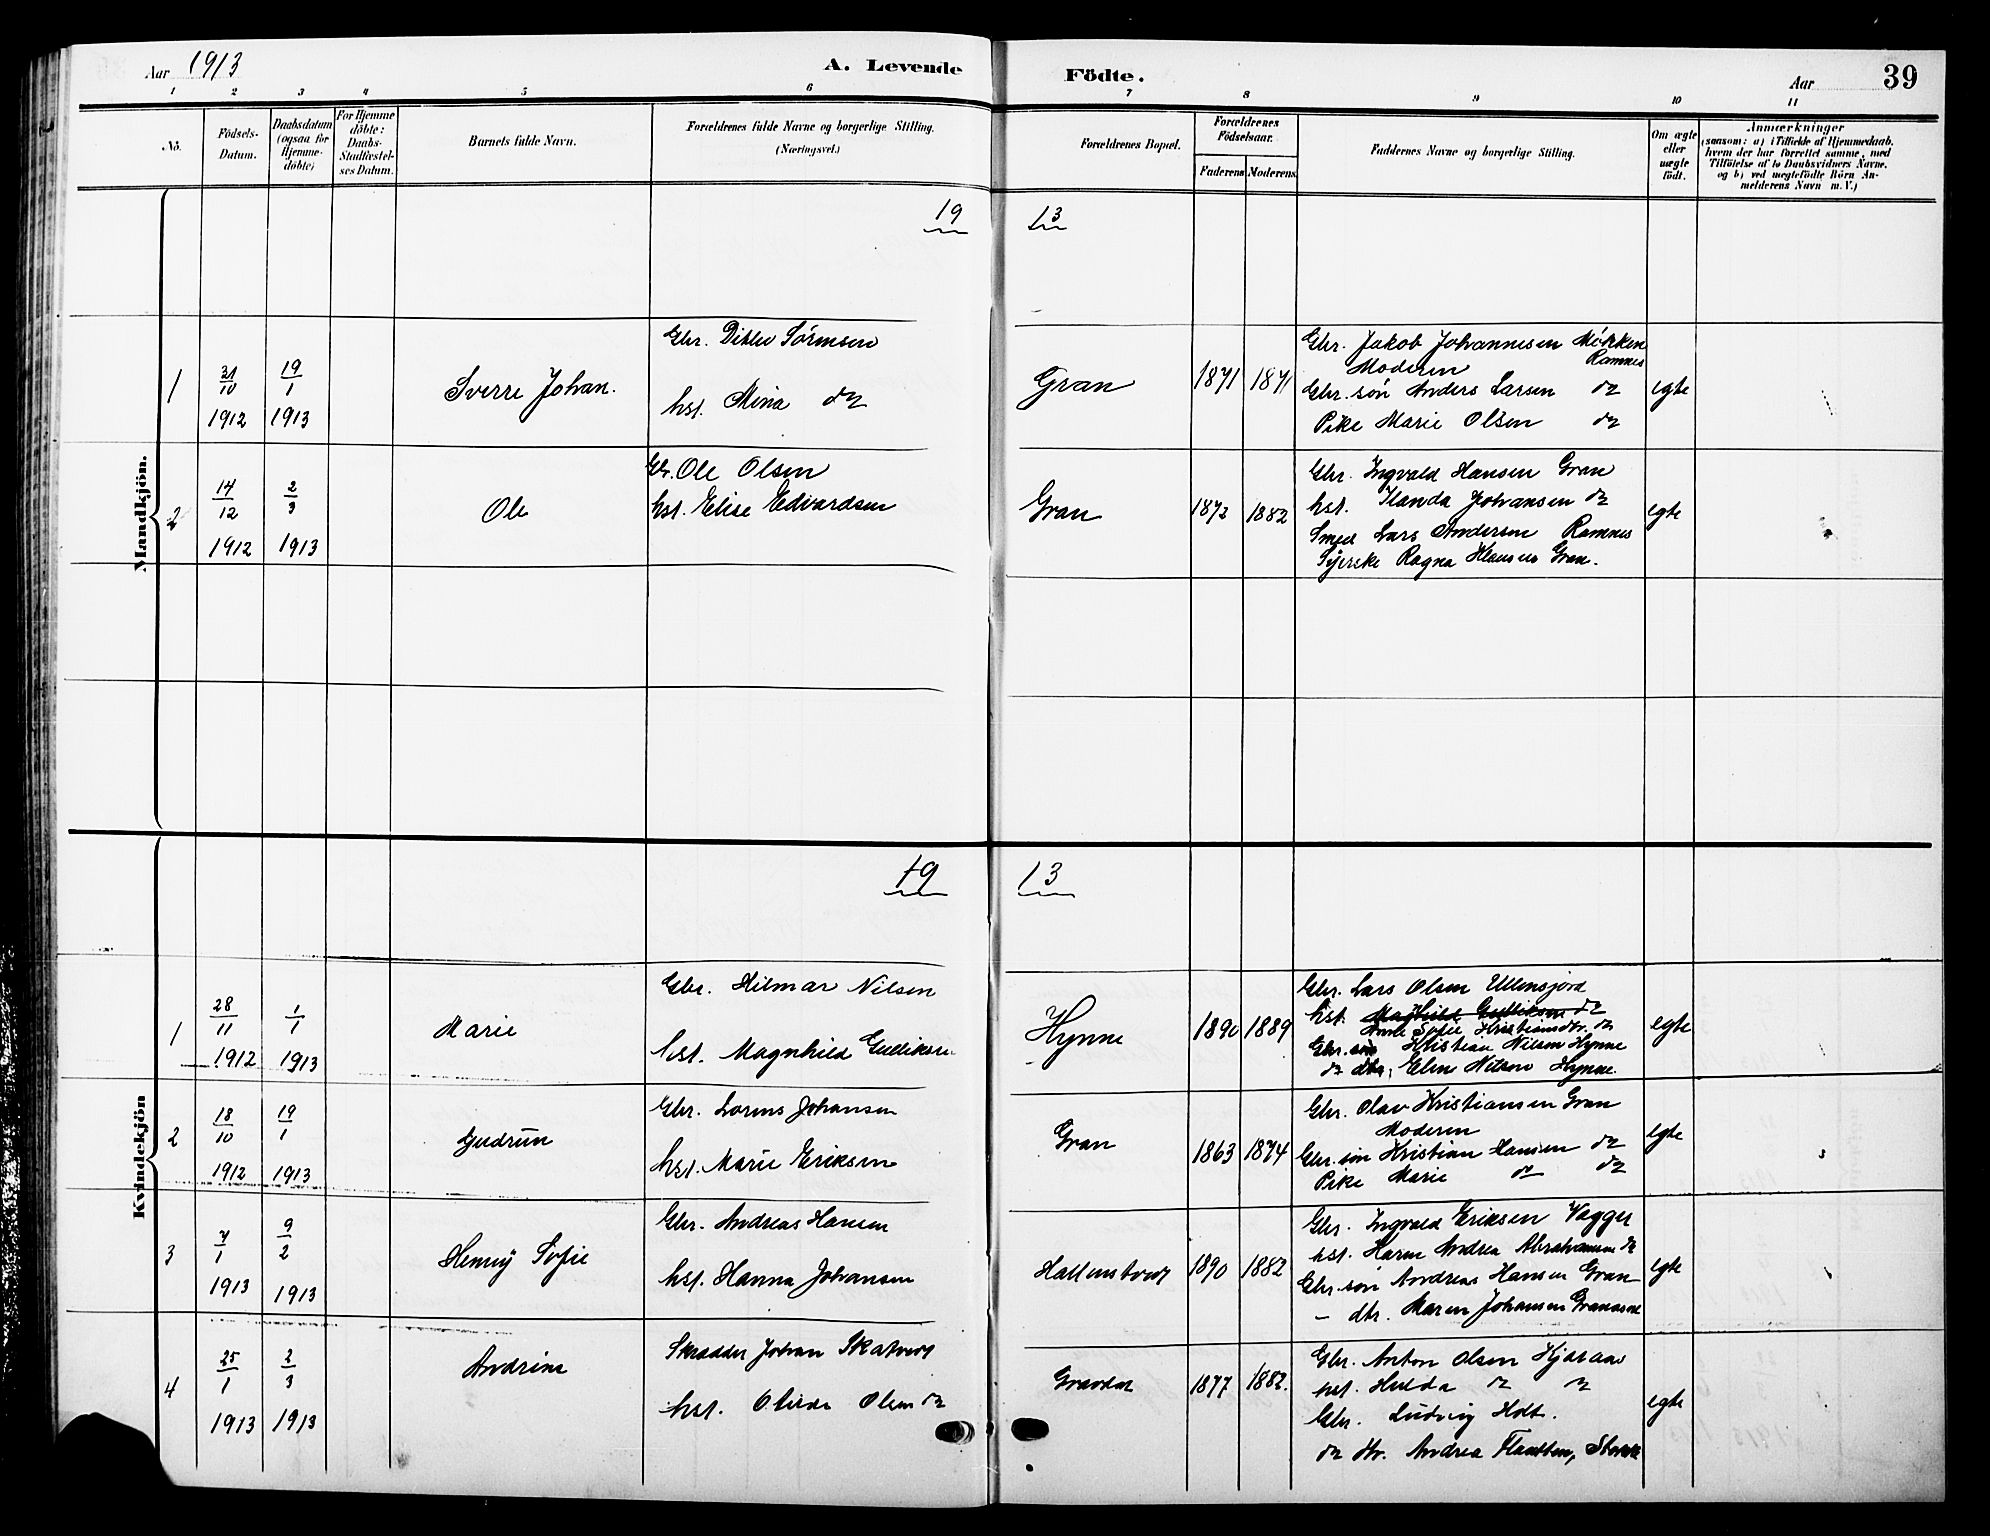 Aar 1913
A. Levende Födte.
Aar
39
1 2 3 4 5 6 7 8 9 10 11
No.
Födsels-
Datum.
Daabsdatum
(ogsaa for
Hjemme-
döbte)
For Hjemme
döbte:
Daabs-
Stadfæstel-
ses Datum.
Barnets fulde Navn.
Forældrenes fulde Navne og borgerlige Stilling.
(Næringsvei.)
Forældrenes Bopæl.
Forældrenes
Födselsaar.
Faderens
Moderens
Faddernes Navne og borgerlige Stilling.
Om ægte
eller
uægte
födt.
Anmærkninger
(saasom: a) i Tilfælde af Hjemmedaab,
hvem der har forrettet samme, med
Tilföielse af to Daabsvidners Navne,
og b) ved uægtefödte Börn An-
melderens Navn m. V.)
Mandkjön.
19 13
1
31/10 1912
19/1 1913
Sverre Johan.
Gbr. Ditlev Sörensen
hst. Mina do
Gran
1871
1871
Gbr. Jakob Johannesen
Ramnes
Moderen
Gbr. søn Anders Larsen do
Pike Marie Olsen do
egte
2
14/12 1912
2/3 1913
Ole
Gbr. Ole Olsen
hst. Elise Edvardsen
Gran
1872
1882
Gbr. Ingvald Hansen Gran
hst. Johansen do
Smed Lars Andersen Ramnes
Syerske Ragna Gran.
egte
Kvindekjön
19 13
1
28/11 1912
1/1 1913
Marie
Gbr. Hilmar Nilsen
hst. Magnhild Gulliksen
Hynne
1890
1889
Gbr. Lars Olsen
hst. do
Sofie Kristiansdtr. do
Gbr. søn Kristian Nilsen Hynne
do dtr. Elen Nilsen Hynne.
egte
2
18/10 1912
19/1 1913
Gudrun
Gbr. Lorens Johansen
hst. Marie Eriksen
Gran
1863
1874
Gbr. Olav Kristiansen Gran
Moderen
Gbr. søn Kristian Hansen do
Pike Marie do do
egte
3
7/1 1913
9/2 1913
Henny Sofie
Gbr. Andreas Hansen
hst. Hanna Johansen
Hallenstvedt
1890
1882
Gbr. Ingvald Eriksen
hst. Karen Andrea Abrahamsen do
Gbr. søn Andreas Hansen Gran
— dtr. Maren Johansen
egte
4
25/1 1913
2/3 1913
Andrine
Skrædder Johan Skatvedt
hst. Olsen do
Gravdal
1877
1882.
Gbr. Anton Olsen
hst. Hulda do do
Gbr. Ludvig Holt.
do Andrea
egte